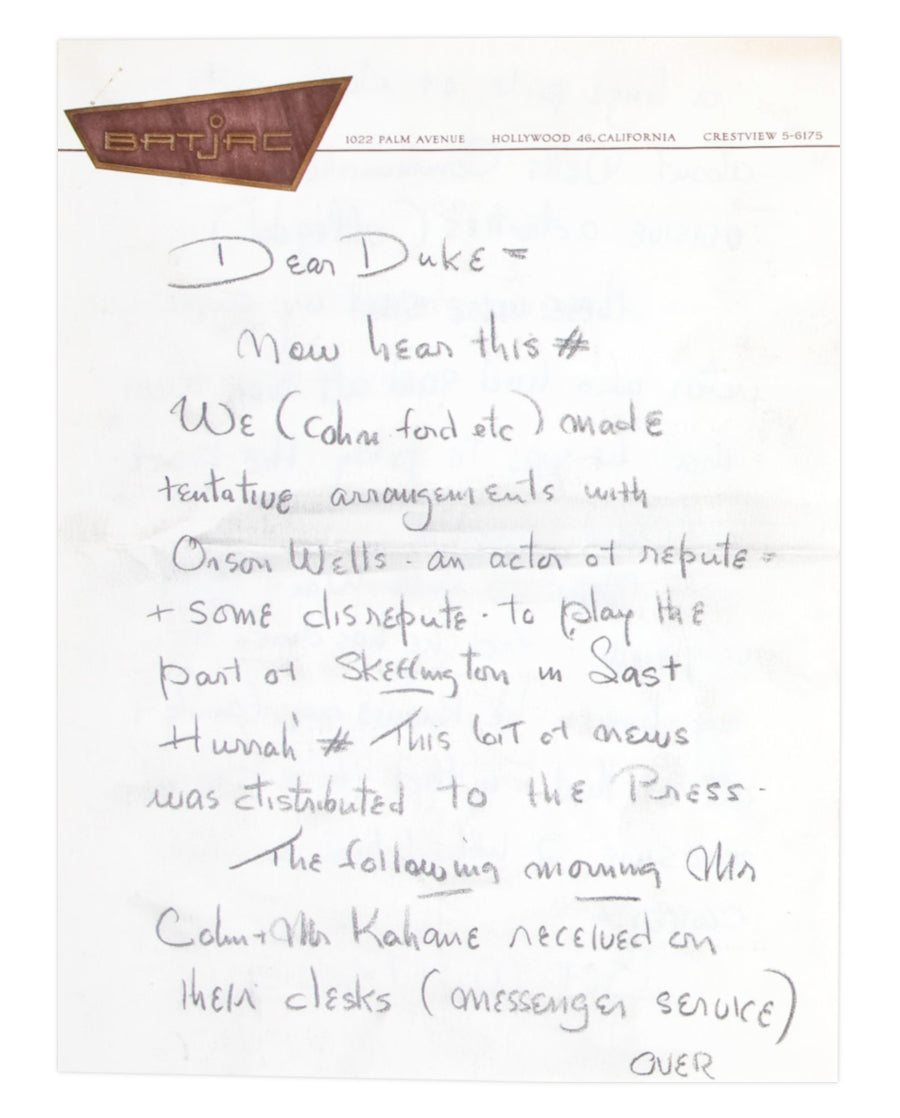 BATJAC
1022 PALM AVENUE HOLLYWOOD 46, CALIFORNIA CRESTVIEW 5-6175
Dear Duke =
Now hear this #
We (Cohn ford etc) made
tentative arrangements with
Orson Wells - an actor of repute -
+ some disrepute - to play the
part of Skeffington in Last
Hurrah # This bit of news
was distributed to the Press -
The following morning Mr
Cohn + Mr Kahane received on
their desks (messenger service)
OVER